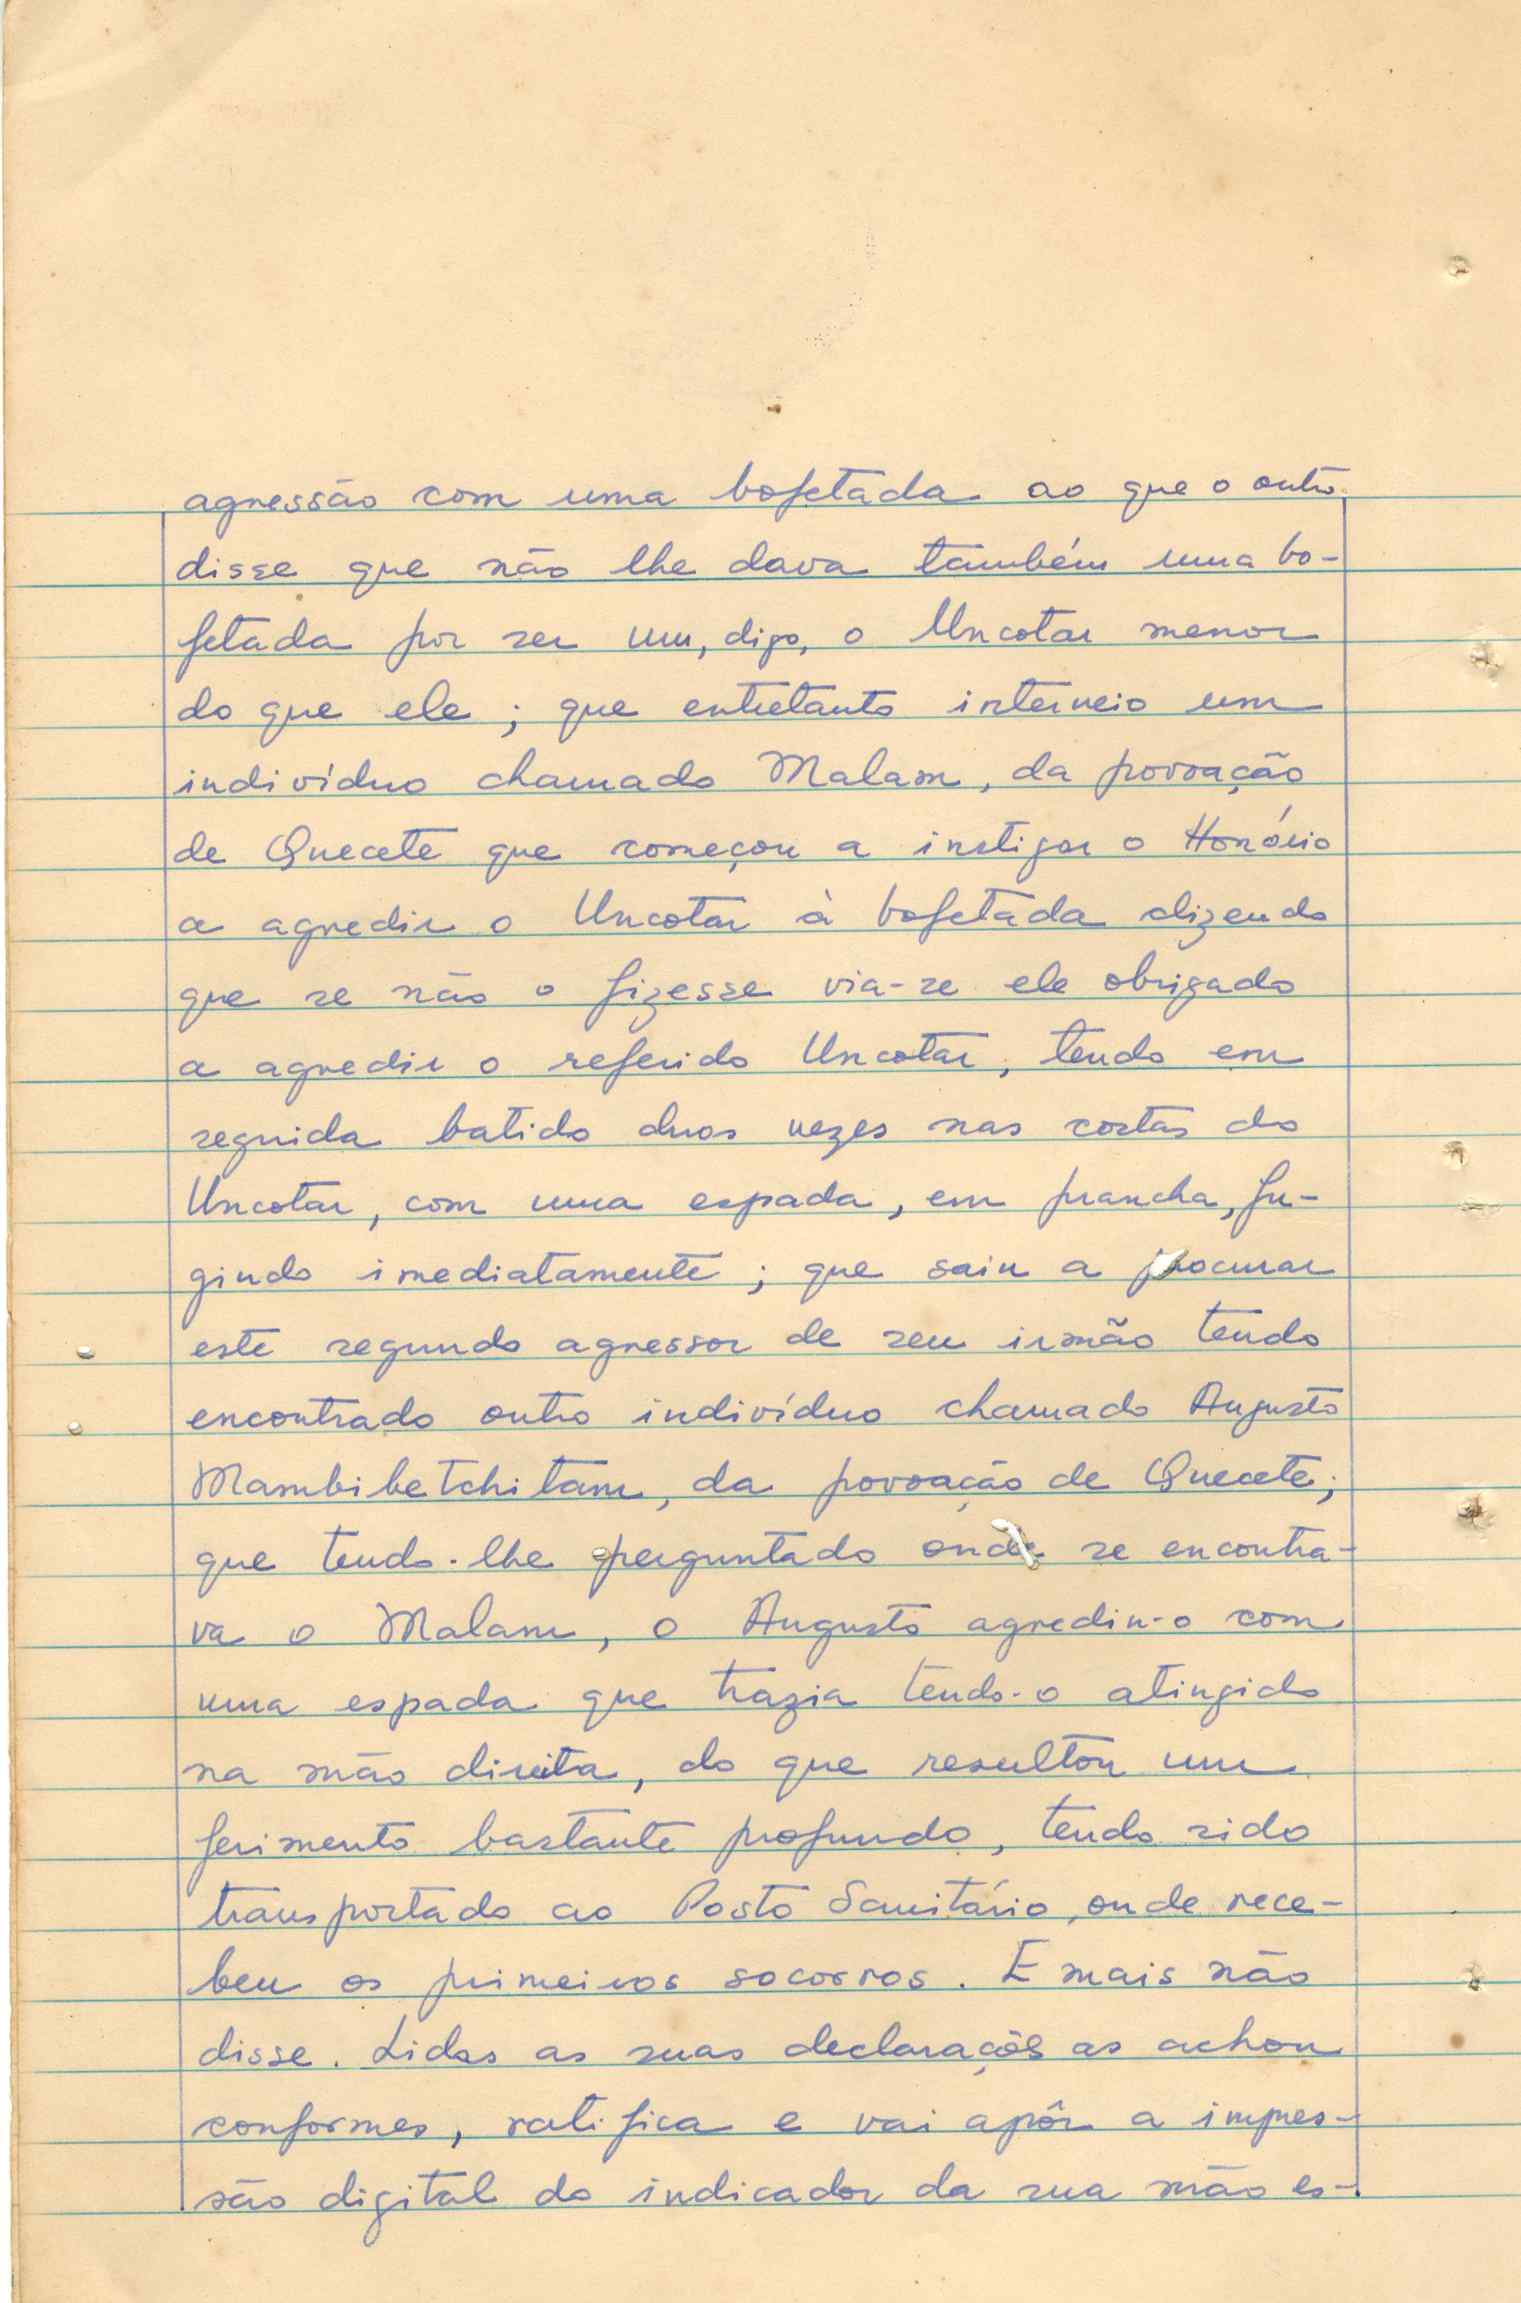 agressão com uma bofetada ao que o outro
disse que não lhe dava também uma bo-
fetada por ser um, digo, o Uncotar menor
do que ele; que entretanto interveio um
indivíduo chamado Malam, da povoação
de Quecete que começou a instigar o Honório
a agredir o Uncotar à bofetada dizendo
que se não o fizesse via-se ele obrigado
a agredir o referido Uncotar, tendo em
seguida batido duas vezes nas costas do
Uncotar, com uma espada, em prancha, fu-
gindo imediatamente; que saiu a procurar
este segundo agressor de seu irmão tendo
encontrado outro indivíduo chamado Augusto
Mambibetchitam, da povoação de Quecete;
que tendo-lhe perguntado onde se encontra-
va o Malam, o Augusto agrediu-o com
uma espada que trazia tendo-o atingido
na mão direita, do que resultou um
ferimento bastante profundo, tendo sido
transportado ao Posto Sanitário, onde rece-
beu os primeiros socorros. E mais não
disse. Lidas as suas declarações as achou
conformes, ratifica e vai apôr a impres-
são digital do indicador da sua mão es-